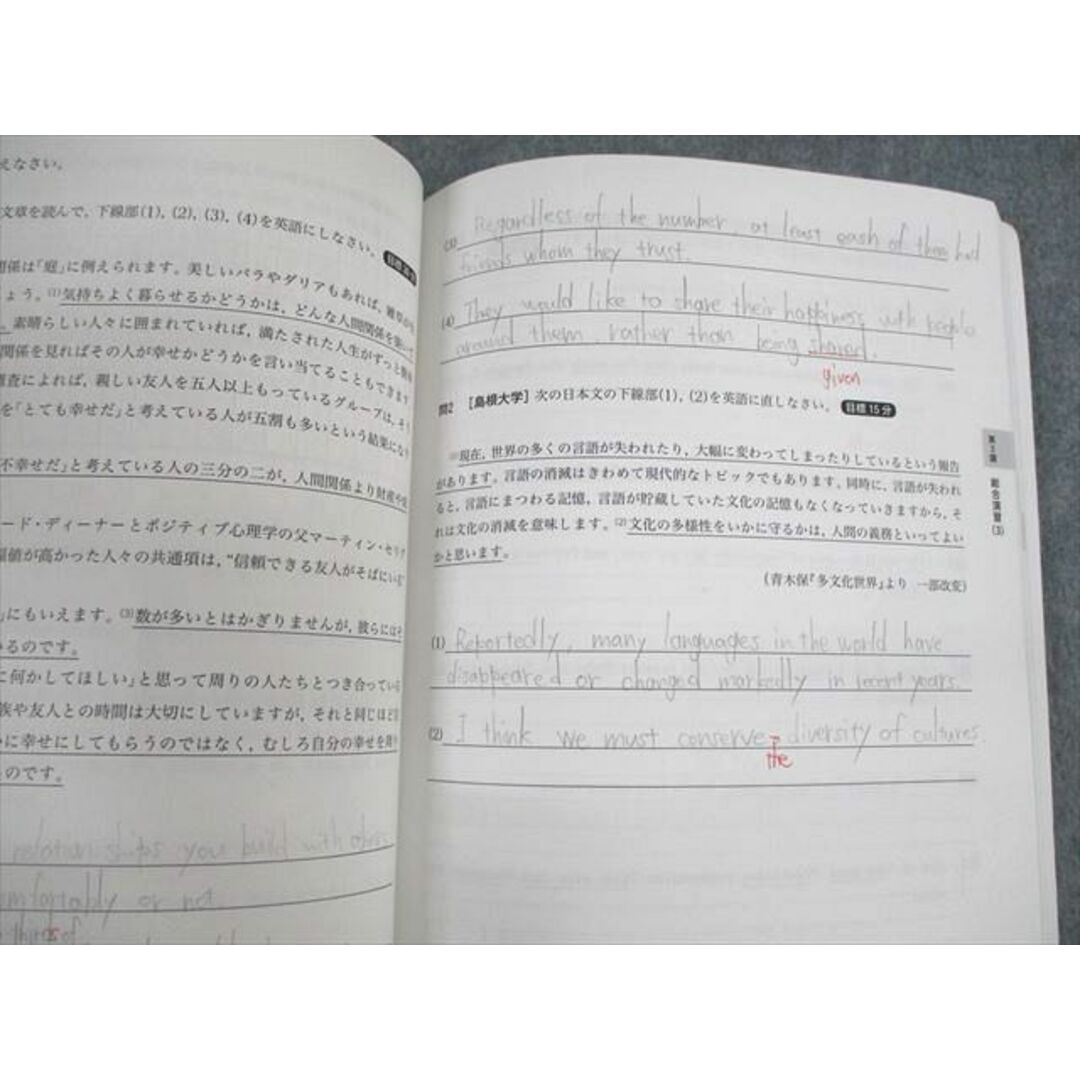 えなさい。
文章を読んで, 下線部(1), (2), (3), (4)を英語にしなさい。
関係は「庭」に例えられます。美しいバラやダリアもあれば, 雑草が
ょう。(1)気持ちよく暮らせるかどうかは, どんな人間関係を築いて
素晴らしい人々に囲まれていれば, 満たされた人生がずっと
関係を見ればその人が幸せかどうかを言い当てることもできます
調査によれば, 親しい友人を五人以上もっているグループは, そう
を「とても幸せだ」と考えている人が五割も多いという結果になり
不幸せだ」と考えている人の三分の二が, 人間関係より財産や
ード・ディーナーとポジティブ心理学の父マーティン・セリグ
福値が高かった人々の共通項は, “信頼できる友人がそばにいる”
」にもいえます。(3)数が多いとはかぎりませんが, 彼らにはそ
いるのです。
に何かしてほしい」と思って周りの人たちとつき合っている
族や友人との時間は大切にしていますが, それと同じほど
かに幸せにしてもらうのではなく, むしろ自分の幸せを周り
のです。
relationships you build with others
comfortably or not
thirds of
(3) Regardless of the number, at least each of them had
friends whom they trust.
(4) They would like to share their happiness with people
around them, rather than being shared.
given
問2 [島根大学] 次の日本文の下線部(1), (2)を英語に直しなさい。 目標15分
(1)現在, 世界の多くの言語が失われたり, 大幅に変わってしまったりしているという報告
があります。言語の消滅はきわめて現代的なトピックでもあります。同時に, 言語が失われ
ると, 言語にまつわる記憶, 言語が貯蔵していた文化の記憶もなくなっていきますから, そ
れは文化の消滅を意味します。(2)文化の多様性をいかに守るかは, 人間の義務といってよい
かと思います。
(青木保『多文化世界』より 一部改変)
(1) Reportedly, many languages in the world have
disappeared or changed markedly in recent years.
(2) I think we must conserve diversity of cultures.
the
第3講 総合演習(3)